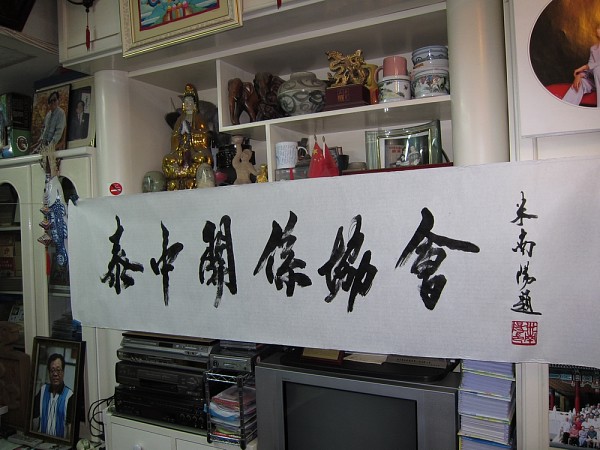 泰中關係協會
米南陽題